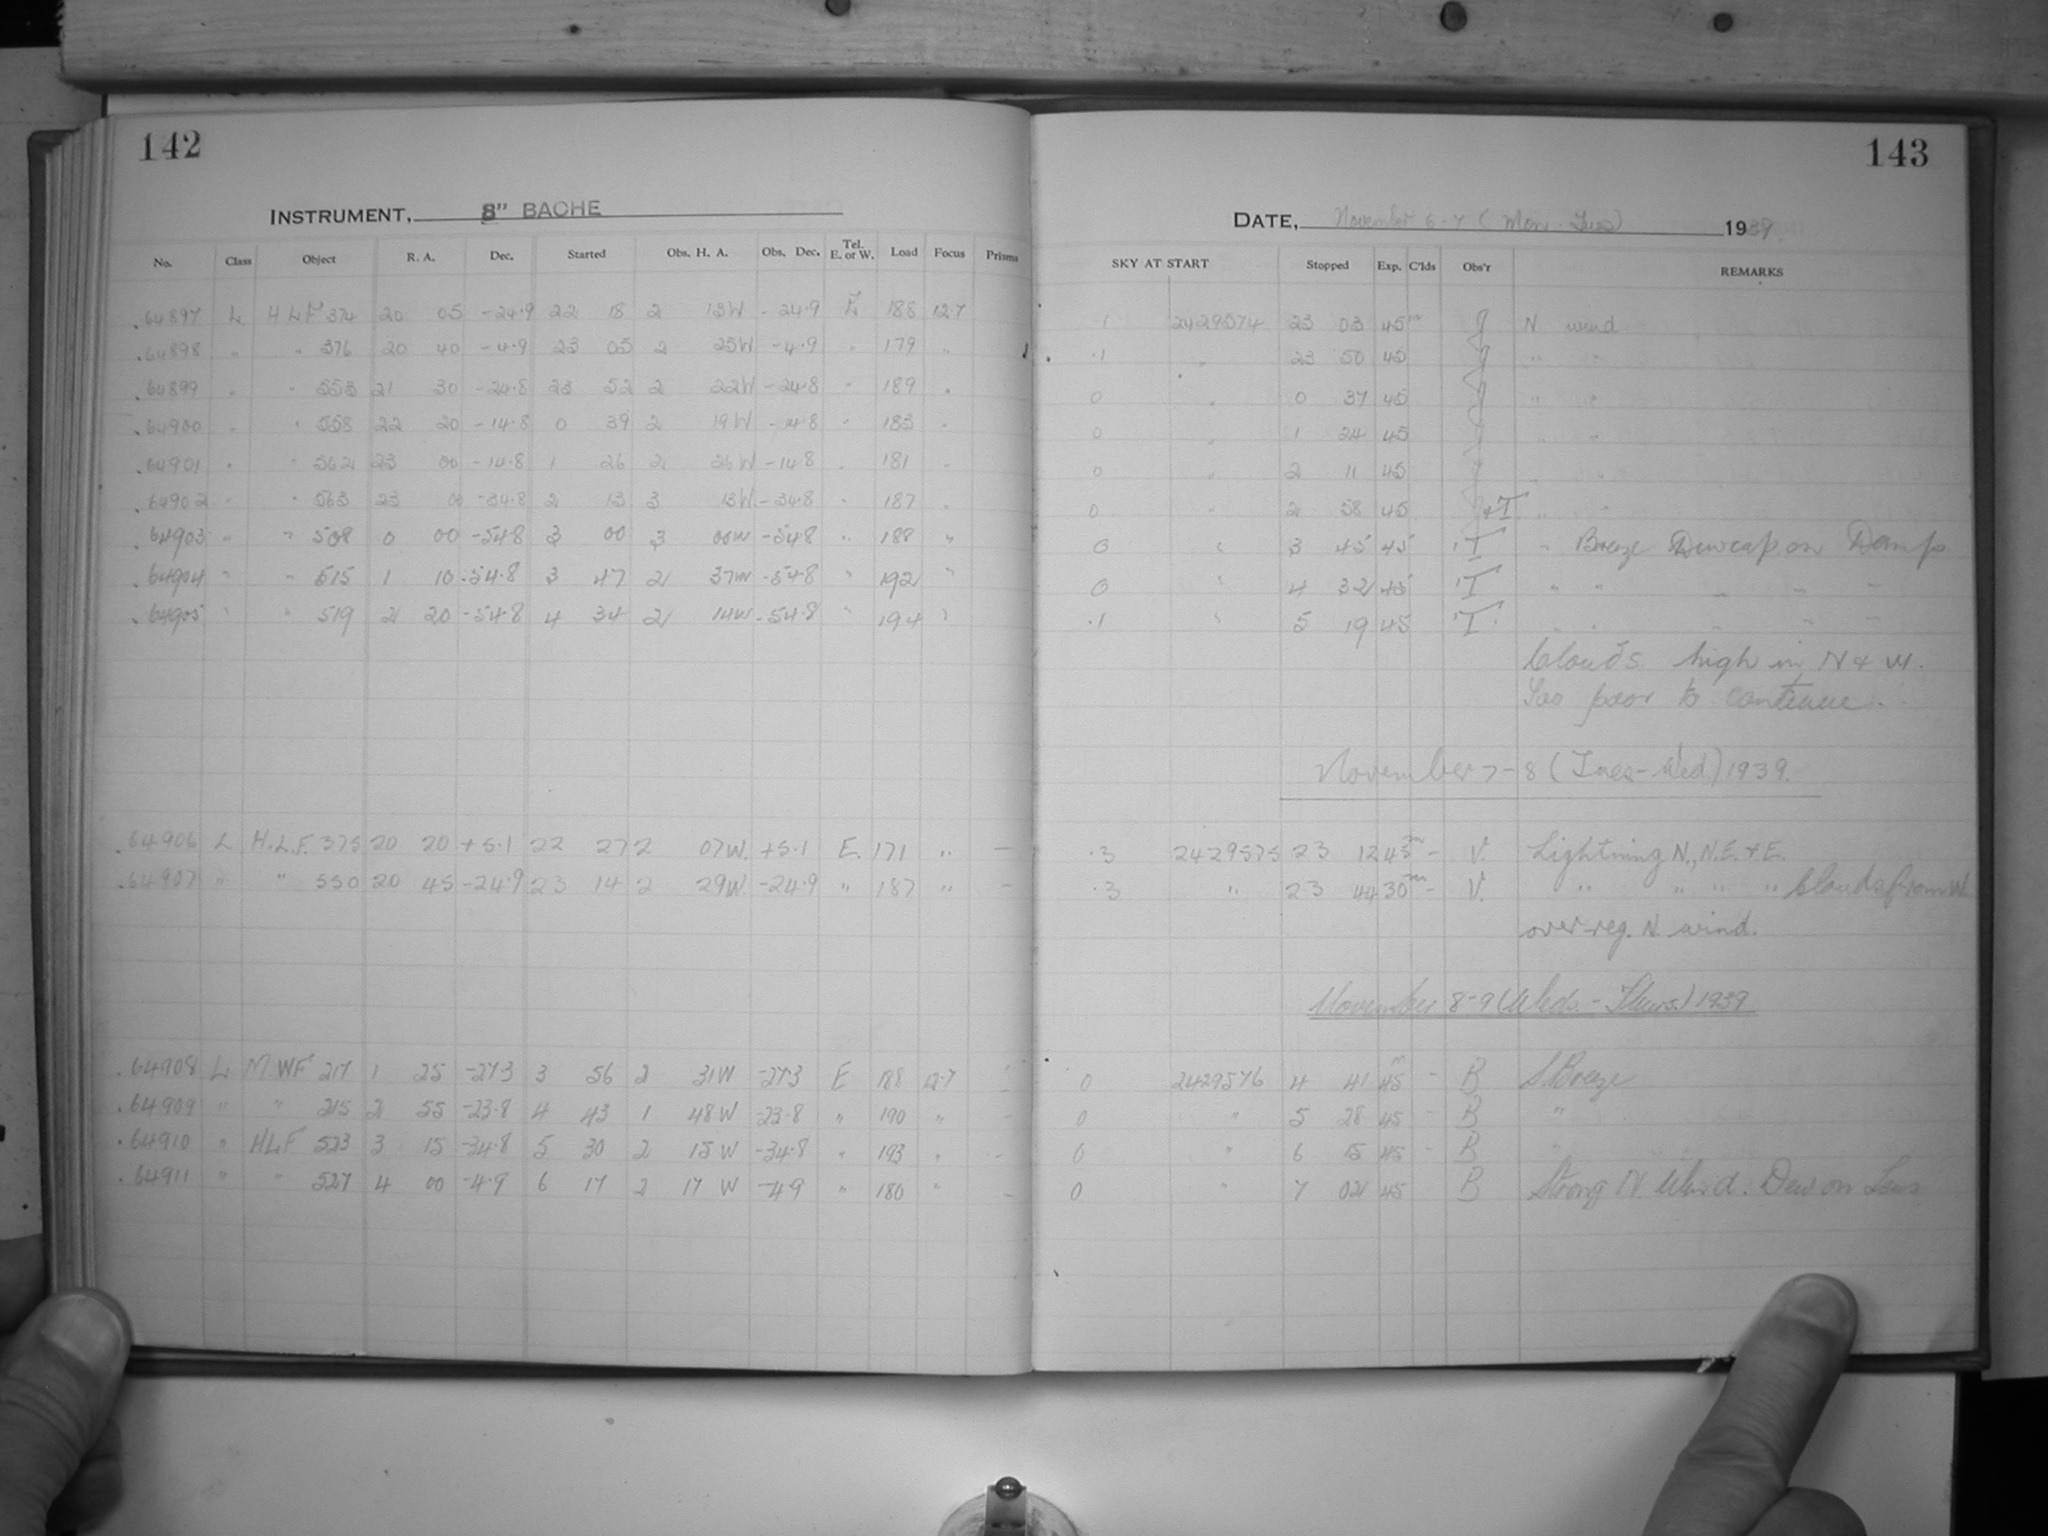 142
INSTRUMENT, 8" BACHE
No. Class Object R. A. Dec. Started Obs. H. A. Obs. Dec. Tel. E. or W. Load Focus Prisms
64897 L HLF 374 20 05 -24.9 22 18 2 13W -24.9 E 188 12.7
64898 " " 376 20 40 -4.9 23 05 2 25W -4.9 " 179 "
64899 " " 553 21 30 -24.8 23 52 2 22W -24.8 " 189 "
64900 " " 558 22 20 -14.8 0 39 2 19W -14.8 " 183 "
64901 " " 562 23 00 -14.8 1 26 2 26W -14.8 " 181 "
64902 " " 563 23 00 -34.8 2 13 3 13W -34.8 " 187 "
64903 " " 508 0 00 -54.8 3 00 3 00W -54.8 " 188 "
64904 " " 515 1 10 -54.8 3 47 2 37W -54.8 " 192 "
64905 " " 519 2 20 -54.8 4 34 2 14W -54.8 " 194 "
64906 L H.L.F. 375 20 20 +5.1 22 27 2 07W. +5.1 E. 171 " —
64907 " " 550 20 45 -24.9 23 14 2 29W. -24.9 " 187 " —
64908 L M.WF 217 1 25 -27.3 3 56 2 31W -27.3 E 188 12.7 -
64909 " " 215 2 55 -23.8 4 43 1 48W -23.8 " 190 " -
64910 " HLF 523 3 15 -34.8 5 30 2 15W -34.8 " 193 " -
64911 " " 527 4 00 -4.9 6 17 2 17 W -4.9 " 180 " -
143
DATE, November 6-7 (Mon-Tues) 1939
SKY AT START Stopped Exp. C'lds Obs'r REMARKS
1 2429574 23 03 45m g N wind
.1 " 23 50 45 g " "
0 " 0 37 45 g " "
0 " 1 24 45 g " "
0 " 2 11 45 g " "
0 " 2 58 45 g+T " "
0 " 3 45 45 T " Breeze Dewcap on Damp
0 " 4 32 45 T " " " " "
.1 " 5 19 45 T " " " " "
Clouds high in N & W.
Too poor to continue.
November 7-8 (Tues-Wed.) 1939.
.3 2429575 23 12 45m - V. Lightning N., N.E. & E.
.3 " 23 44 30m - V. " " " " Clouds from W.
over reg. N. wind.
November 8-9 (Weds.-Thurs.) 1939
0 2429576 4 41 45m - B S Breeze
0 " 5 28 45 - B "
0 " 6 15 45 - B "
0 " 7 02 45 B Strong N. Wind. Dew on Lens